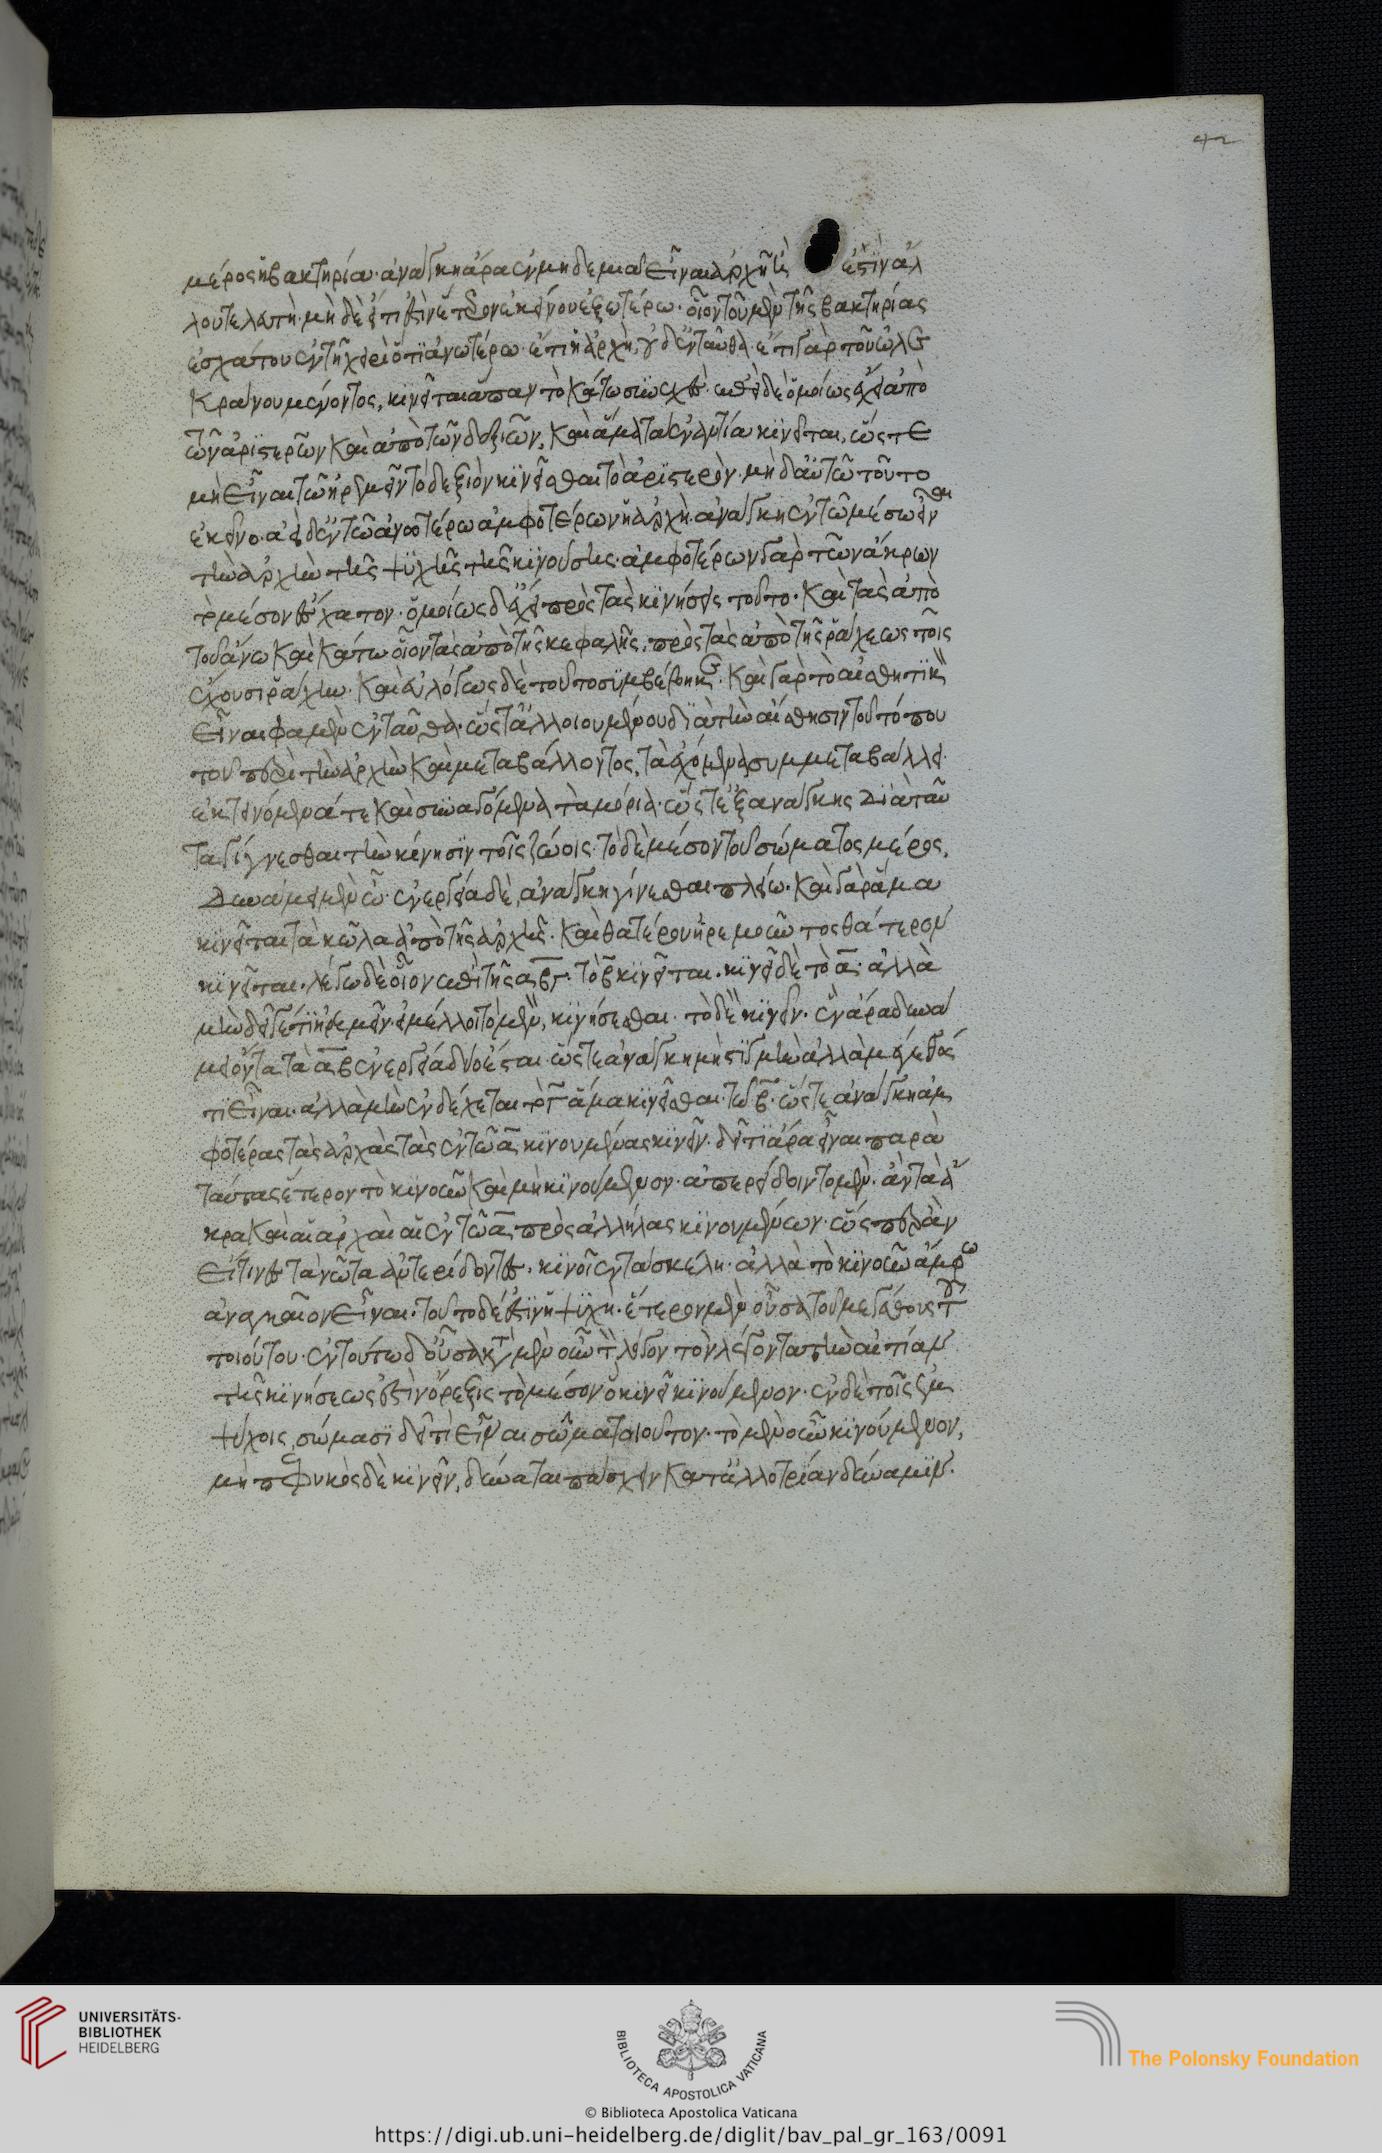 42
μέρος ἡ βακτηρία· ἀνάγκη ἄρα ἐν μηδεμιᾷ εἶναι ἀρχῇ ἐστὶν ἄλ
λου τελευτὴ· μὴ δὲ εἴ τι ἐστὶν ἕτερον ἐκείνου ἐξωτέρω· οἷον τοῦ μὲν τῆς βακτηρίας
ἐσχάτου ἐν τῇ χειρὶ ὅτι ἀνωτέρω ἔτι ἡ ἀρχὴ, οὐδ' ἐνταῦθα· ἔτι γὰρ τοῦ ὠλε
κράνου μένοντος, κινεῖται ἅπαν τὸ κάτω συνεχές· ἐπεὶ δὲ ὁμοίως ἔχει ἀπὸ
τῶν ἀριστερῶν καὶ ἀπὸ τῶν δεξιῶν, καὶ ἅμα τἀναντία κινεῖται, ὥστε
μὴ εἶναι τῷ ἠρεμεῖν τὸ δεξιὸν κινεῖσθαι τὸ ἀριστερόν· μὴ δ' αὖ τῷ τοῦτο
ἐκεῖνο· ἀεὶ δ' ἐν τῷ ἀνωτέρω ἀμφοτέρων ἡ ἀρχὴ· ἀνάγκη ἐν τῷ μέσῳ εἶναι
τὴν ἀρχὴν τῆς ψυχῆς τῆς κινούσης· ἀμφοτέρων γὰρ τῶν ἄκρων
τὸ μέσον ἔσχατον· ὁμοίως δ' ἔχει πρὸς τὰς κινήσεις τοῦτο· καὶ τὰς ἀπὸ
τοῦ ἄνω καὶ κάτω οἷον τὰς ἀπὸ τῆς κεφαλῆς, πρὸς τὰς ἀπὸ τῆς ῥάχεως τοῖς
ἔχουσι ῥάχιν· καὶ εὐλόγως δὲ τοῦτο συμβέβηκε· καὶ γὰρ τὸ αἰσθητικὸν
εἶναι φαμὲν ἐνταῦθα· ὥστ' ἀλλοιουμένου διὰ τὴν αἴσθησιν τοῦ τόπου
τοῦ περὶ τὴν ἀρχὴν καὶ μεταβάλλοντος, τὰ ἐχόμενα συμμεταβάλλει
ἐκτεινόμενά τε καὶ συναγόμενα τὰ μόρια· ὥστ' ἐξ ἀνάγκης διὰ ταῦ
τα γίγνεσθαι τὴν κίνησιν τοῖς ζῴοις· τὸ δὲ μέσον τοῦ σώματος μέρος,
δυνάμει μὲν ἕν· ἐνεργείᾳ δὲ, ἀνάγκη γίνεσθαι πλείω· καὶ γὰρ ἅμα
κινεῖται τὰ κῶλα ἀπὸ τῆς ἀρχῆς· καὶ θατέρου ἠρεμοῦντος θάτερον
κινεῖται· λέγω δὲ οἷον ἐπὶ τῆς αβγ· τὸ β κινεῖται· κινεῖ δὲ τὸ α· ἀλλὰ
μὴν δεῖ γέ τι ἠρεμεῖν· εἰ μέλλοι τὸ μὲν, κινήσεσθαι· τὸ δὲ κινεῖν· ἓν ἄρα δυνά
μει ὄντα τὰ α β ἐνεργείᾳ δύο ἔσται· ὥστε ἀνάγκη μὴ στιγμὴν ἀλλὰ μέγεθός
τι εἶναι· ἀλλὰ μὴν ἐνδέχεται τὸ γ ἅμα κινεῖσθαι τῷ β· ὥστε ἀνάγκη ἀμ
φοτέρας τὰς ἀρχὰς τὰς ἐν τῷ α κινουμένας κινεῖν· δεῖ τι ἄρα εἶναι παρὰ
ταύτας ἕτερον τὸ κινοῦν καὶ μὴ κινούμενον· ἀπερείδοιντο μὲν· ἂν τὰ ἄ
κρα καὶ αἱ ἀρχαὶ αἱ ἐν τῷ α πρὸς ἀλλήλας κινουμένων· ὥσπερ ἂν
εἴ τινες τὰ νῶτα ἀντερείδοντες· κινοῖεν τὰ σκέλη· ἀλλὰ τὸ κινοῦν ἄμφω
ἀναγκαῖον εἶναι· τοῦτο δέ ἐστιν ἡ ψυχὴ· ἕτερον μὲν οὖσα τοῦ μεγέθους τοῦ
τοιούτου· ἐν τούτῳ δ' οὖσα· κατὰ μὲν οὖν τὸν λόγον τὸν λέγοντα τὴν αἰτίαν
τῆς κινήσεως ἐστὶν ὄρεξις τὸ μέσον ὃ κινεῖ κινούμενον· ἐν δὲ τοῖς ἐμ
ψύχοις σώμασι δεῖ τι εἶναι σῶμα τοιοῦτον· τὸ μὲν οὖν κινούμενον,
μὴ πεφυκὸς δὲ κινεῖν, δύναται πάσχειν κατ' ἀλλοτρίαν δύναμιν·
UNIVERSITÄTS-
BIBLIOTHEK
HEIDELBERG
BIBLIOTECA APOSTOLICA VATICANA
The Polonsky Foundation
© Biblioteca Apostolica Vaticana
https://digi.ub.uni-heidelberg.de/diglit/bav_pal_gr_163/0091